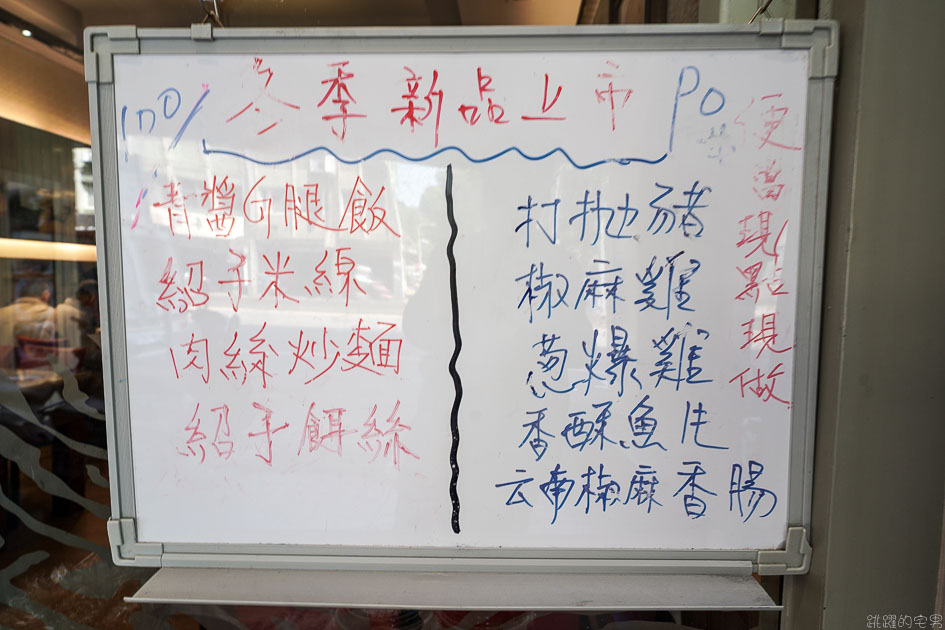 100% 冬季新品上市 PO
青醬G腿飯
紹子米線
肉絲炒麵
紹子餌絲
打抛豬
椒麻雞
葱爆雞
香酥魚片
云南椒麻香腸
便當現點現做
跳躍的宅男